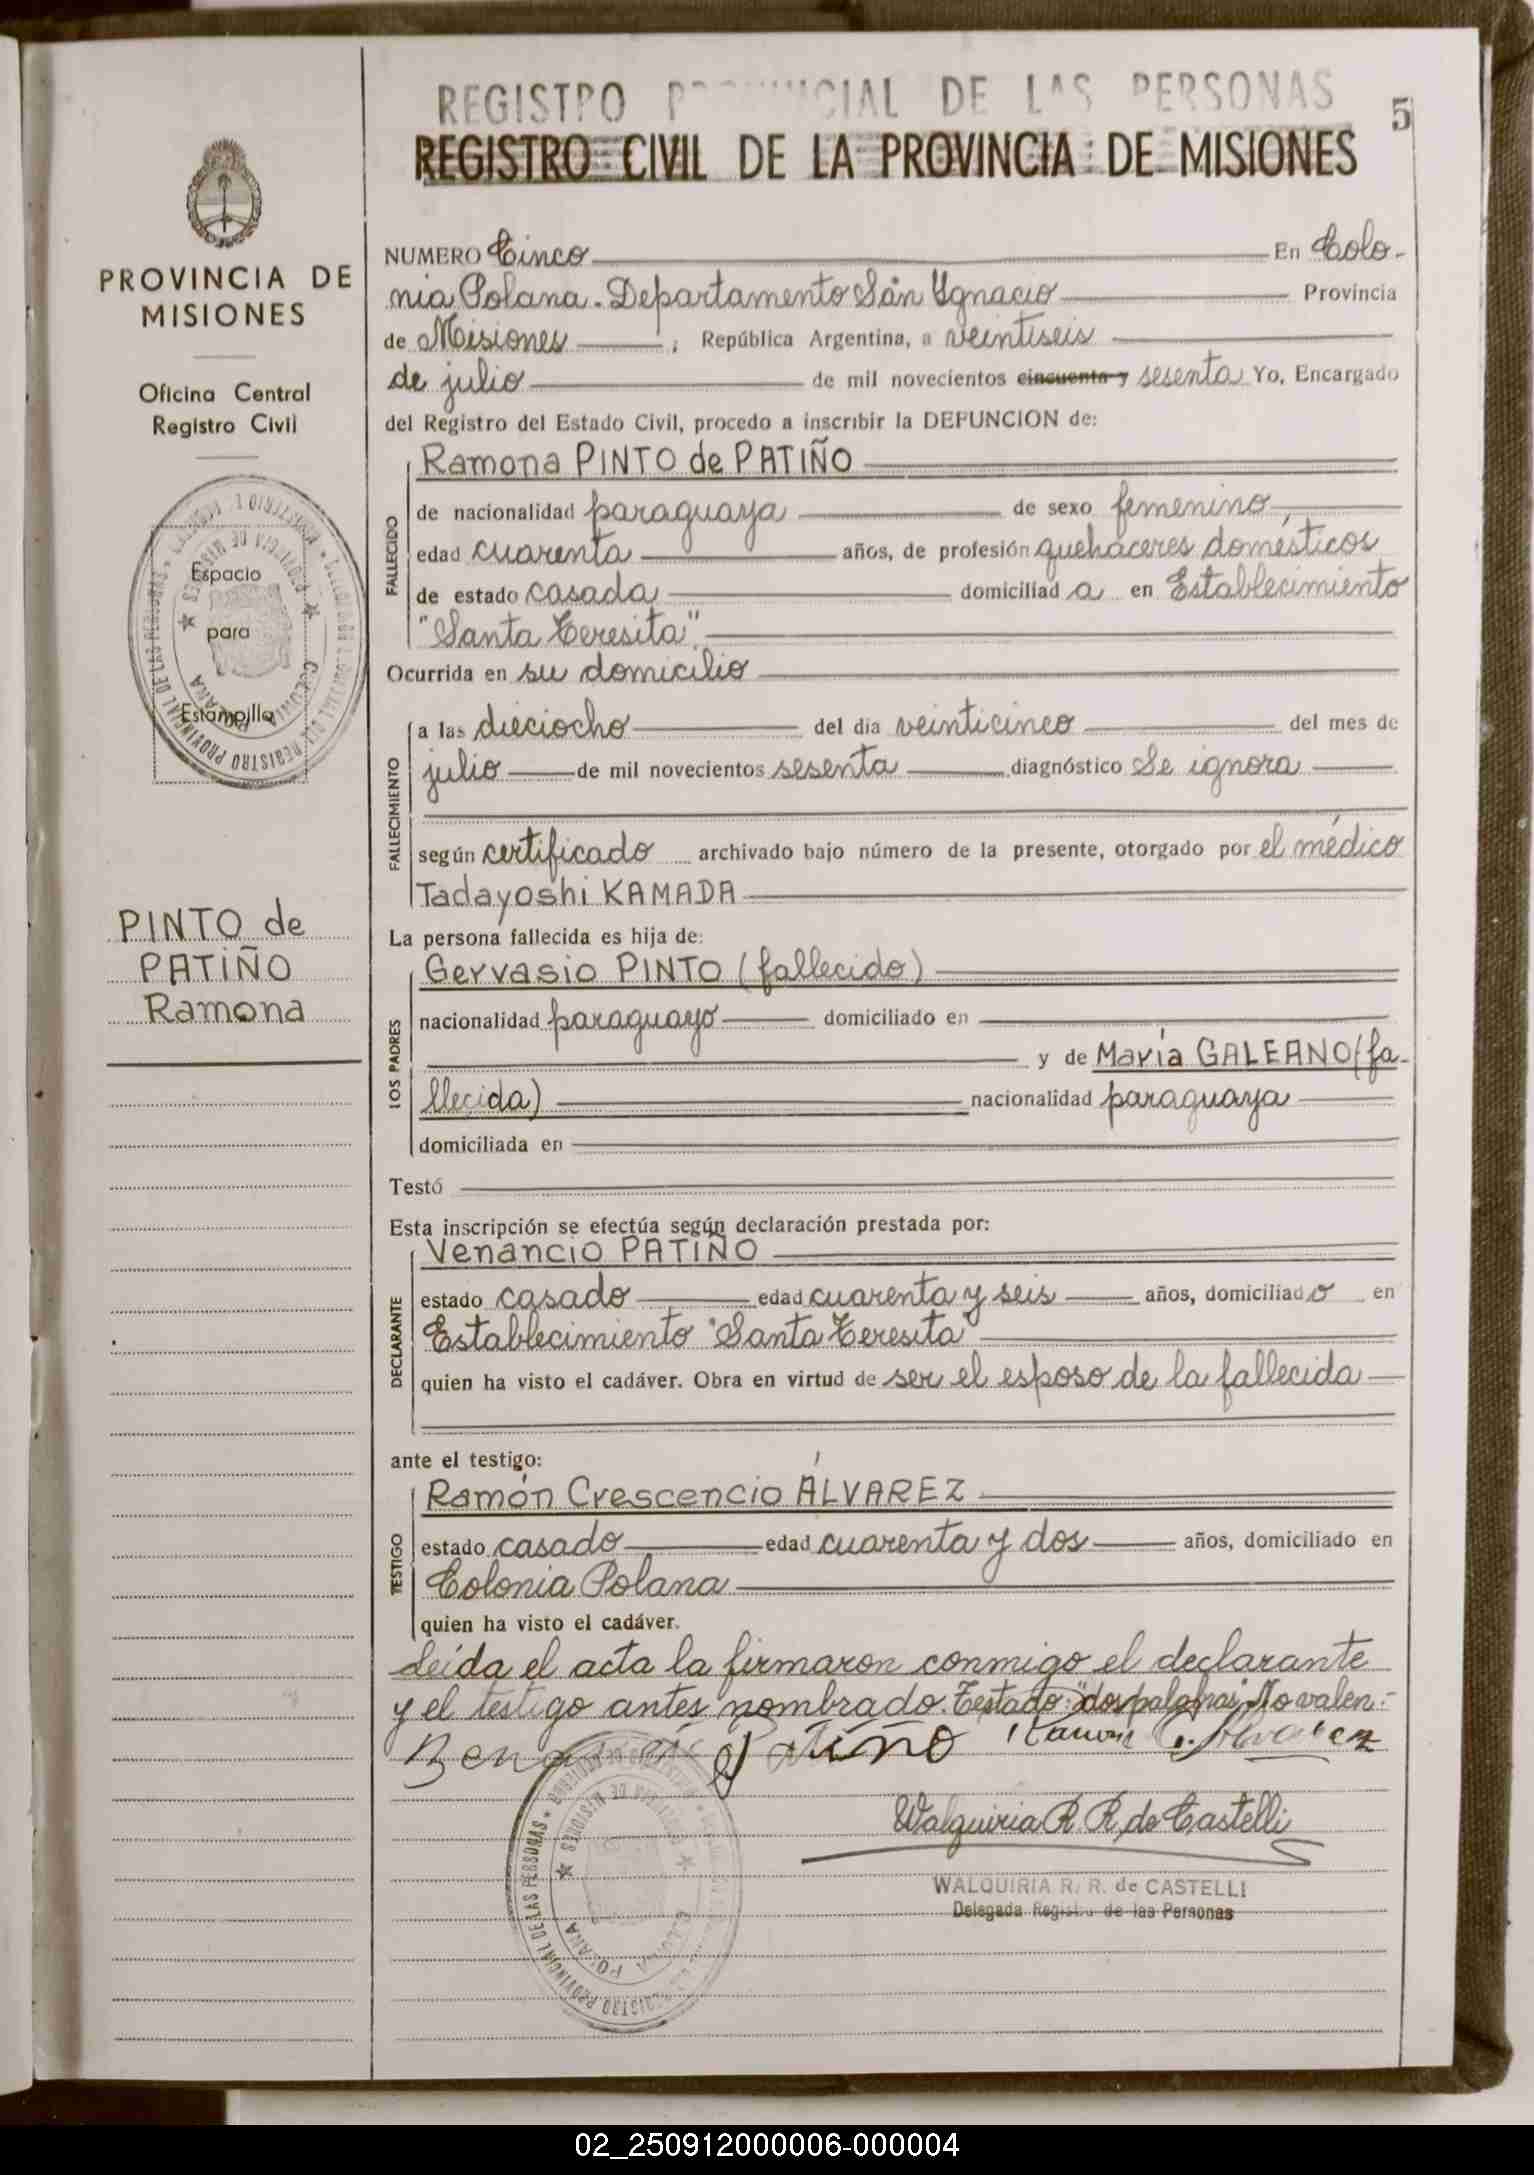 REGISTRO PROVINCIAL DE LAS PERSONAS
5
REGISTRO CIVIL DE LA PROVINCIA DE MISIONES
PROVINCIA DE
MISIONES
Oficina Central
Registro Civil
Espacio
para
Estampilla
PINTO de
PATIÑO
Ramona
NUMERO Cinco En Colo-
nia Polana. Departamento San Ygnacio Provincia
de Misiones, República Argentina, a veintiseis
de julio de mil novecientos cincuenta y sesenta Yo, Encargado
del Registro del Estado Civil, procedo a inscribir la DEFUNCION de:
FALLECIDO
Ramona PINTO de PATIÑO
de nacionalidad paraguaya de sexo femenino,
edad cuarenta años, de profesión quehaceres domésticos
de estado casada domiciliad a en Establecimiento
"Santa Teresita"
Ocurrida en su domicilio
FALLECIMIENTO
a las dieciocho del día veinticinco del mes de
julio de mil novecientos sesenta diagnóstico Se ignora
según certificado archivado bajo número de la presente, otorgado por el médico
Tadayoshi KAMADA
La persona fallecida es hija de:
LOS PADRES
Gervasio PINTO (fallecido)
nacionalidad paraguayo domiciliado en
y de María GALEANO (fa-
llecida) nacionalidad paraguaya
domiciliada en
Testó
Esta inscripción se efectúa según declaración prestada por:
DECLARANTE
Venancio PATIÑO
estado casado edad cuarenta y seis años, domiciliado en
Establecimiento "Santa Teresita"
quien ha visto el cadáver. Obra en virtud de ser el esposo de la fallecida
ante el testigo:
TESTIGO
Ramón Crescencio ÁLVAREZ
estado casado edad cuarenta y dos años, domiciliado en
Colonia Polana
quien ha visto el cadáver.
Leída el acta la firmaron conmigo el declarante
y el testigo antes nombrado. Testado: "dos palabras" No valen.-
Patiño Ramon C. Alvarez
Walquiria R. R. de Castelli
WALQUIRIA R. R. de CASTELLI
Delegada Registro de las Personas
REGISTRO PROVINCIAL DE LAS PERSONAS
02_250912000006-000004